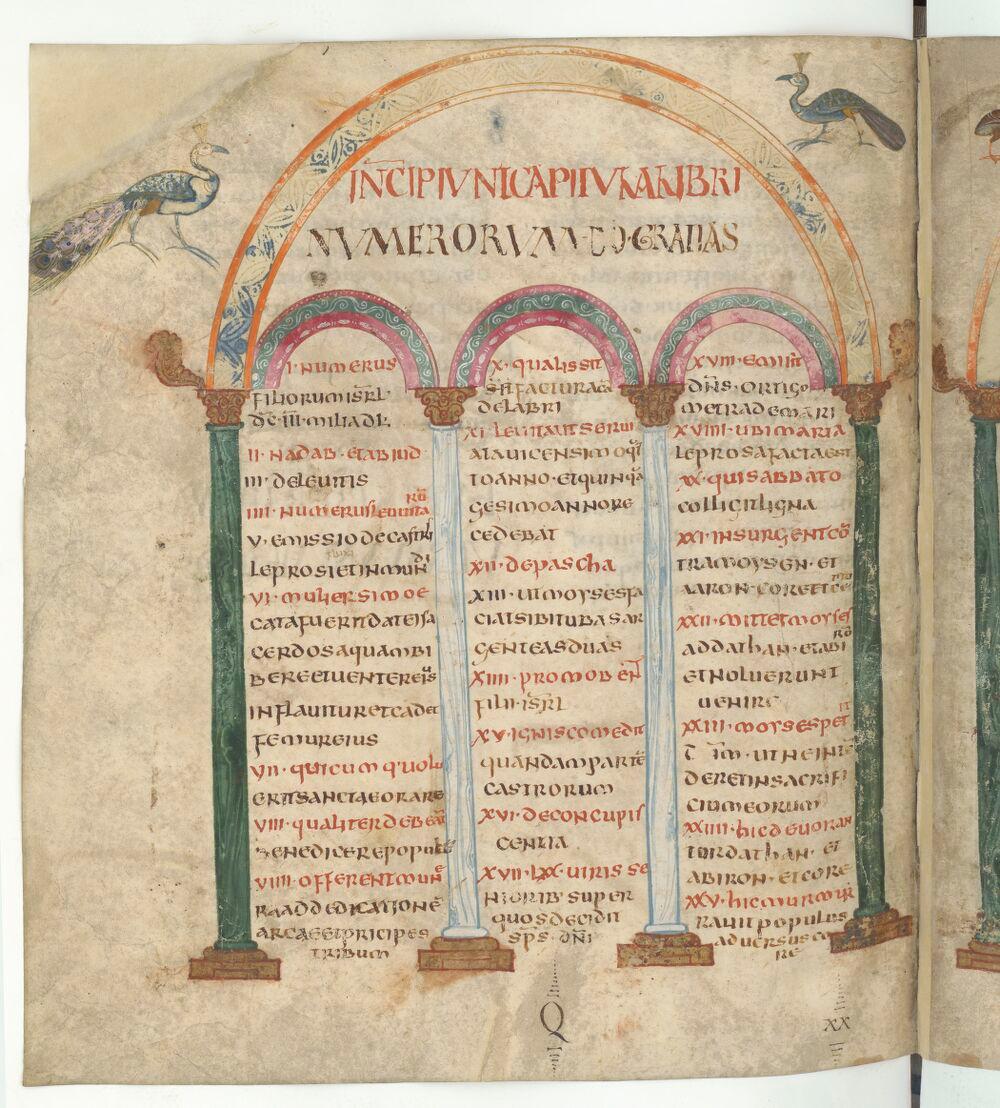 INCIPIUNT CAPITULA LIBRI
NUMERORUM · DO · GRATIAS
I · NUMERUS
FILIORUM ISRL
DC · III · MILIA DL
II · NADAB · ET ABIUD
III · DE LEUITIS
IIII · NUMERUS LEUITARU
V · EMISSIO DE CASTRI
LEPROSI ET INMUNDI
VI · MULIER SI MOE
CATA FUERIT DATEI SA
CERDOS AQUAM BI
BERE ET UENTER EIUS
INFLAUITUR ET CADET
FEMUR EIUS
VII · QUICUMQ UOLU
ERIT SANCTAE ORARE
VIII · QUALITER DEBEAT
BENEDICERE POPULU
VIIII · OFFERENT MUNE
RA AD DEDICATIONE
ARCAE ET PRICIPES
TRIBUUM
X · QUALIS SIT
FACTURA
DELABRI
XI · LEUITA UT SERUI
ALAUICENSIMO QI
TO ANNO · ET QUINQA
GESIMO ANNO RE
CEDEBAT
XII · DE PASCHA
XIII · UT MOYSES FA
CIAT SIBI TUBAS AR
GENTEAS DUAS
XIIII · PROMOBENT
FILII · ISRL
XV · IGNIS COMEDIT
QUANDAM PARTE
CASTRORUM
XVI · DE CONCUPIS
CENTIA
XVII · LXX · UIRIS SE
NIORIB SUPER
QUOS DECIDIT
SPS · DNI
XVIII · EMISIT
DNS · ORTIGO
METRA DE MARI
XVIIII · UBI MARIA
LEPROSA FACTA EST
XX · QUI SABBATO
COLLIGIT LIGNA
XXI · INSURGENT CO
TRA MOYSEN · ET
AARON · CORE ET CE
XXII · MITTET MOYSES
AD DATHAN · ET ABIRO
ET NOLUERUNT
UENIRE
XXIII · MOYSES PETIIT
UT NE INTE
DERET IN SACRIFI
CIUM EORUM
XXIIII · HIC DEUORAN
TUR DATHAN · ET
ABIRON · ET CORE
XXV · HIC MURMUR
RAUIT POPULUS
ADUERSUS CO
RE
Q
XX